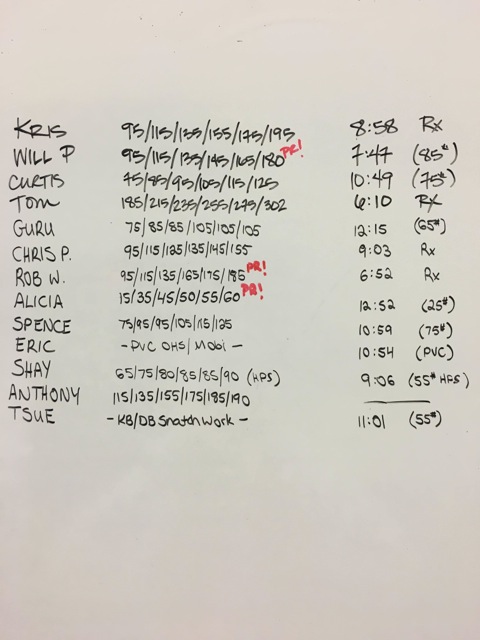 KRIS 95/115/135/155/175/195 8:58 Rx
WILL P 95/115/135/145/165/180 PR! 7:47 (85#)
CURTIS 75/85/95/105/115/125 10:49 (75#)
TOM 185/215/235/255/275/302 6:10 Rx
GURU 75/85/85/105/105/105 12:15 (65#)
CHRIS P. 95/115/125/135/145/155 9:03 Rx
ROB W. 95/115/135/165/175/185 PR! 6:52 Rx
ALICIA 15/35/45/50/55/60 PR! 12:52 (25#)
SPENCE 75/95/95/105/115/125 10:59 (75#)
ERIC - PVC OHS / Mobi - 10:54 (PVC)
SHAY 65/75/80/85/85/90 (HPS) 9:06 (55# HPS)
ANTHONY 115/135/155/175/185/190
TSUE - KB/DB Snatch Work - 11:01 (55#)